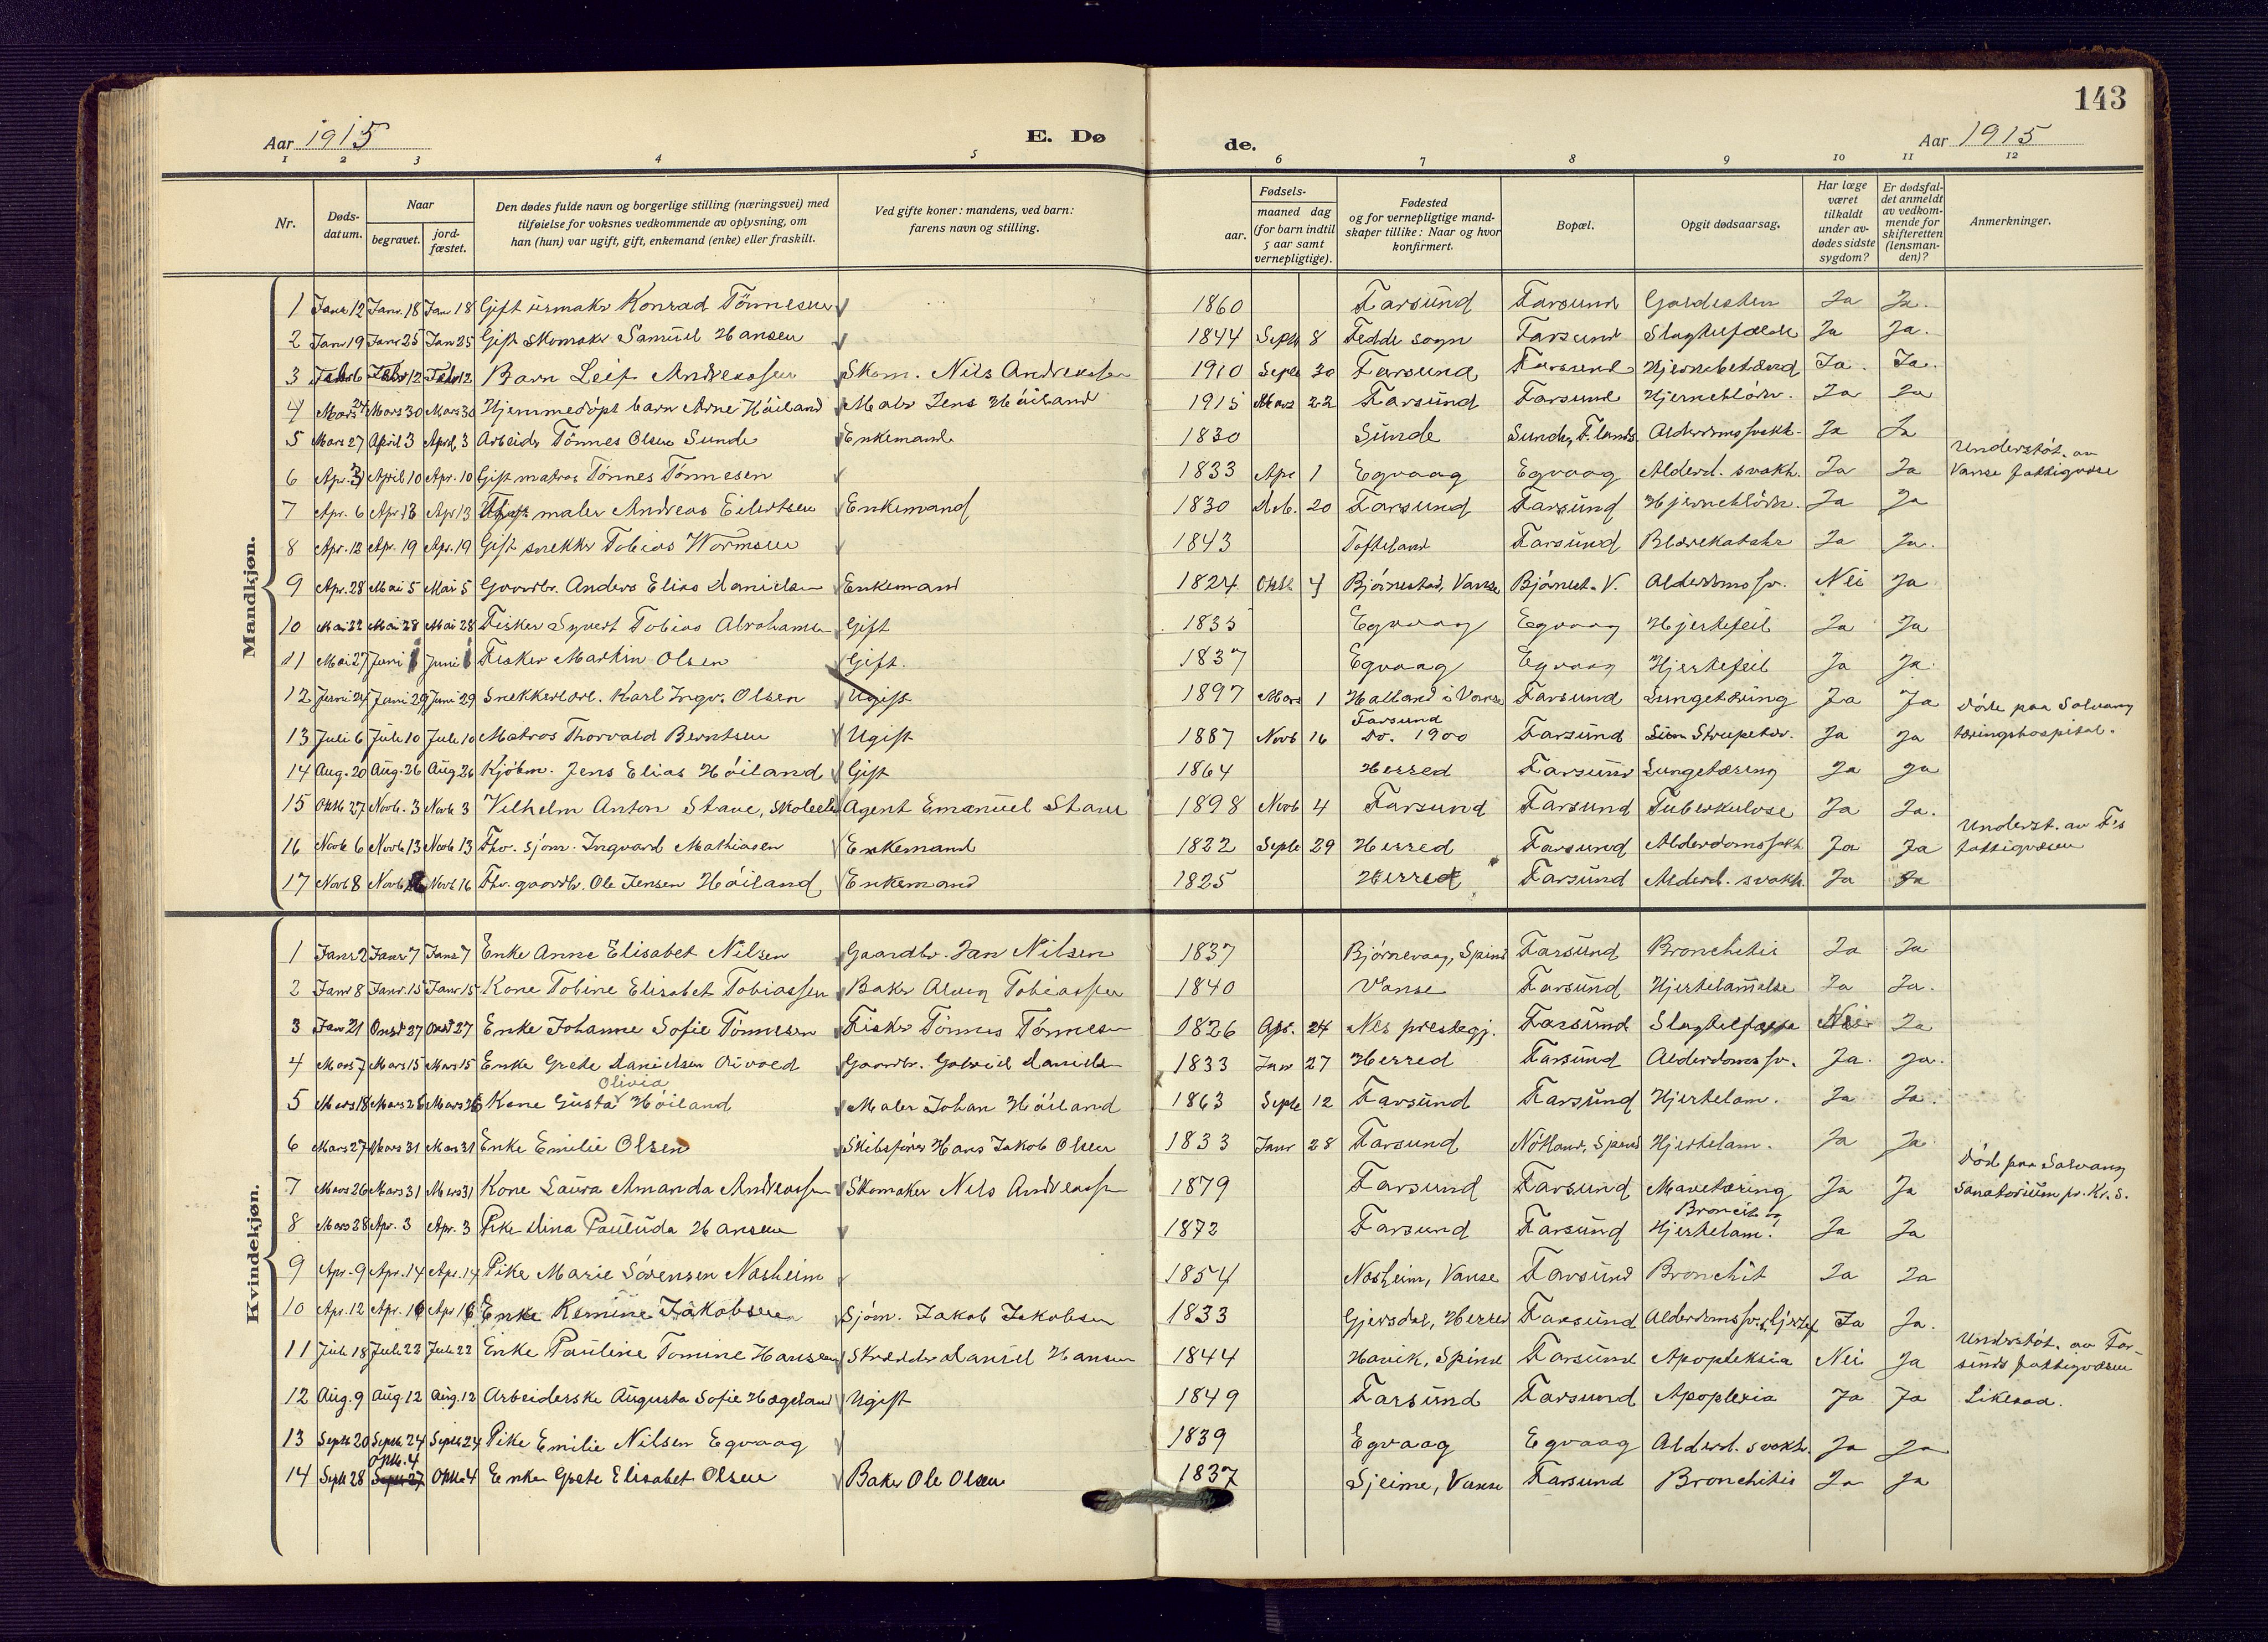 143
Aar 1915 E. Dø de. Aar 1915
1 2 3 4 5 6 7 8 9 10 11 12
Nr. Døds-datum. Naar begravet. jord-fæstet. Den dødes fulde navn og borgerlige stilling (næringsvei) med tilføielse for voksnes vedkommende av oplysning, om han (hun) var ugift, gift, enkemand (enke) eller fraskilt. Ved gifte koner: mandens, ved barn: farens navn og stilling. Fødsels- aar. maaned dag (for barn indtil 5 aar samt vernepligtige). Fødested og for vernepligtige mand-skaper tillike: Naar og hvor konfirmert. Bopæl. Opgit dødsaarsag. Har læge været tilkaldt under av-dødes sidste sygdom? Er dødsfal-det anmeldt av vedkom-mende for skifteretten (lensman-den)? Anmerkninger.
Mandkjøn.
1 Janr 12 Janr. 18 Janr 18 Gift urmakr Konrad Tönnesen 1860 Farsund Farsund Galdesten Ja Ja.
2 Janr 19 Janr 25 Jan 25 Gift skomakr Samuel Hansen 1844 Septb 8 Fedde sogn Farsund Slagtilfælde Ja Ja.
3 Febr 6 Febr 12 Febr 12 Barn Leif Andreassen Skom. Nils Andreassen 1910 Septb 30 Farsund Farsund Hjernebetænd Ja. Ja.
4 Mars 24 Mars 30 Mars 30 Hjemmedöpt barn Arne Höiland Malr Jens Höiland 1915 Mars 22 Farsund Farsund Hjerneblödn. Ja Ja
5 Mars 27 April 3 April 3 Arbeidr Tönnes Olsen Sunde Enkemand 1830 Sunde Sunde, F. lands Alderdomssvakh. Ja Ja
6 Apr. 3 April 10 Apr. 10 Gift matros Tönnes Tönnesen 1833 Apr 1 Egvaag Egvaag Alderd. svakh. Ja Ja Understöt. av Vanse fattigvæsen
7 Apr. 6 Apr 13 Apr 13 maler Andreas Eilertsen Enkemand 1830 Deb. 20 Farsund Farsund Hjerneblödn. Ja Ja
8 Apr. 12 Apr. 19 Apr. 19 Gift snekkr Tobias Wormsen 1843 Tofteland Farsund Blærekatahr Ja Ja.
9 Apr. 28 Mai 5 Mai 5 Gaardbr. Anders Elias Danielsen Enkemand 1824 Oktb 4 Björnestad, Vanse Björnest. V. Alderdomssv. Nei Ja
10 Mai 22 Mai 28 Mai 28 Fisker Syvert Tobias Abrahams Gift 1835 Egvaag Egvaag Hjertefeil Ja Ja
11 Mai 27 Juni Juni Fisker Martin Olsen Gift. 1837 Egvaag Egvaag Hjertefeil Ja Ja.
12 Juni 24 Juni 29 Juni 29 Snekkerlærl. Karl Ingv. Olsen Ugift 1897 Mars 1 Halland i Vanse Farsund Lungetæring Ja Ja Döde paa Solvang tæringshospital.
13 Juli 6 Juli 10 Juli 10 Matros Thorvald Berntsen Ugift 1887 Novb 16 Farsund Do. 1900 Farsund Strupetær. Ja Ja
14 Aug. 20 Aug. 26 Aug 26 Kjöbm. Jens Elias Höiland Gift 1864 Herred Farsund Lungetæring Ja Ja
15 Oktb 27 Novb. 3 Novb 3 Vilhelm Anton Staue, skoleelev Agent Emanuel Staue 1898 Novb 4 Farsund Farsund Tuberkulose Ja Ja.
16 Novb 6 Novb 13 Novb 13 Fhv. sjöm. Ingvard Mathiasen Enkemand 1822 Septb 29 Herred Farsund Alderdomssvakh Ja Ja Underst. av F's fattigvæsen
17 Novb 8 Novb 16 Novb 16 Fhv. gaardbr. Ole Jensen Höiland Enkemand 1825 Herred Farsund Alderd. svakh. Ja Ja
Kvindekjøn.
1 Janr 2 Janr 7 Janr 7 Enke Anne Elisabet Nilsen Gaardbr. Jan Nilsen 1837 Björnevaag, Spind Farsund Bronchitis Ja Ja
2 Janr 8 Janr. 15 Janr 15 Kone Tobine Elisabet Tobiassen Bakr Aluen Tobiassen 1840 Vanse Farsund Hjertelammelse Ja Ja.
3 Jan 21 27 27 Enke Johanne Sofie Tönnesen Fiskr Tönnes Tönnesen 1826 Apr. 24 Nes prestegj. Farsund Nei Ja
4 Mars 7 Mars 15 Mars 15 Enke Grete Danielsen Rivoed Gaardbr. Gabriel Danielsen 1833 Janr 27 Herred Farsund Alderdomssv. Ja. Ja.
5 Mars 18 Mars 26 Mars 26 Kone Gusta Olivia Höiland Maler Johan Höiland 1863 Septb 12 Farsund Farsund Hjertelam. Ja Ja.
6 Mars 27 Mars 31 Mars 31 Enke Emilie Olsen Skibsförer Hans Jakob Olsen 1833 Janr 28 Farsund Nötland, Spind Hjertelam. Ja Ja
7 Mars 26 Mars 31 Mars 31 Kone Laura Amanda Andreassen Skomaker Nils Andreassen 1879 Farsund Farsund Mavetæring Ja Ja Död paa Solvang Sanatorium pr. Kr. S.
8 Mars 28 Apr. 3 Apr. 3 Pike Dina Paulida Hansen 1872 Farsund Farsund Broncit og Hjertelam. Ja Ja
9 Apr. 9 Apr. 14 Apr. 14 Pike Marie Sörensen Nasheim 1854 Nasheim, Vanse Farsund Bronchit Ja Ja
10 Apr. 12 Apr. 16 Apr 16 Enke Remine Jakobsen Sjöm. Jakob Jakobsen 1833 Gjersdal, Herred Farsund Alderdomssv. Ja Ja.
11 Juli 18 Juli 22 Juli 22 Enke Pauline Tomine Hansen Skrædder Daniel Hansen 1844 Havik, Spind Farsund Apopleksia Nei Ja Understöt. av Farsunds fattigvæsen
12 Aug. 9 Aug. 12 Aug. 12 Arbeiderske Augusta Sofie Hægeland Ugift 1849 Farsund Farsund Apoplexia Ja Ja Likesaa.
13 Septb 20 Septb 24 Septb 24 Pike Emilie Nilsen Egvaag 1839 Egvaag Egvaag Alderd. svakh. Ja Ja
14 Septb 28 Oktb. 4 Oktb 4 Enke Grete Elisabet Olsen Baker Ole Olsen 1837 Sjeime, Vanse Farsund Bronchitis Ja Ja